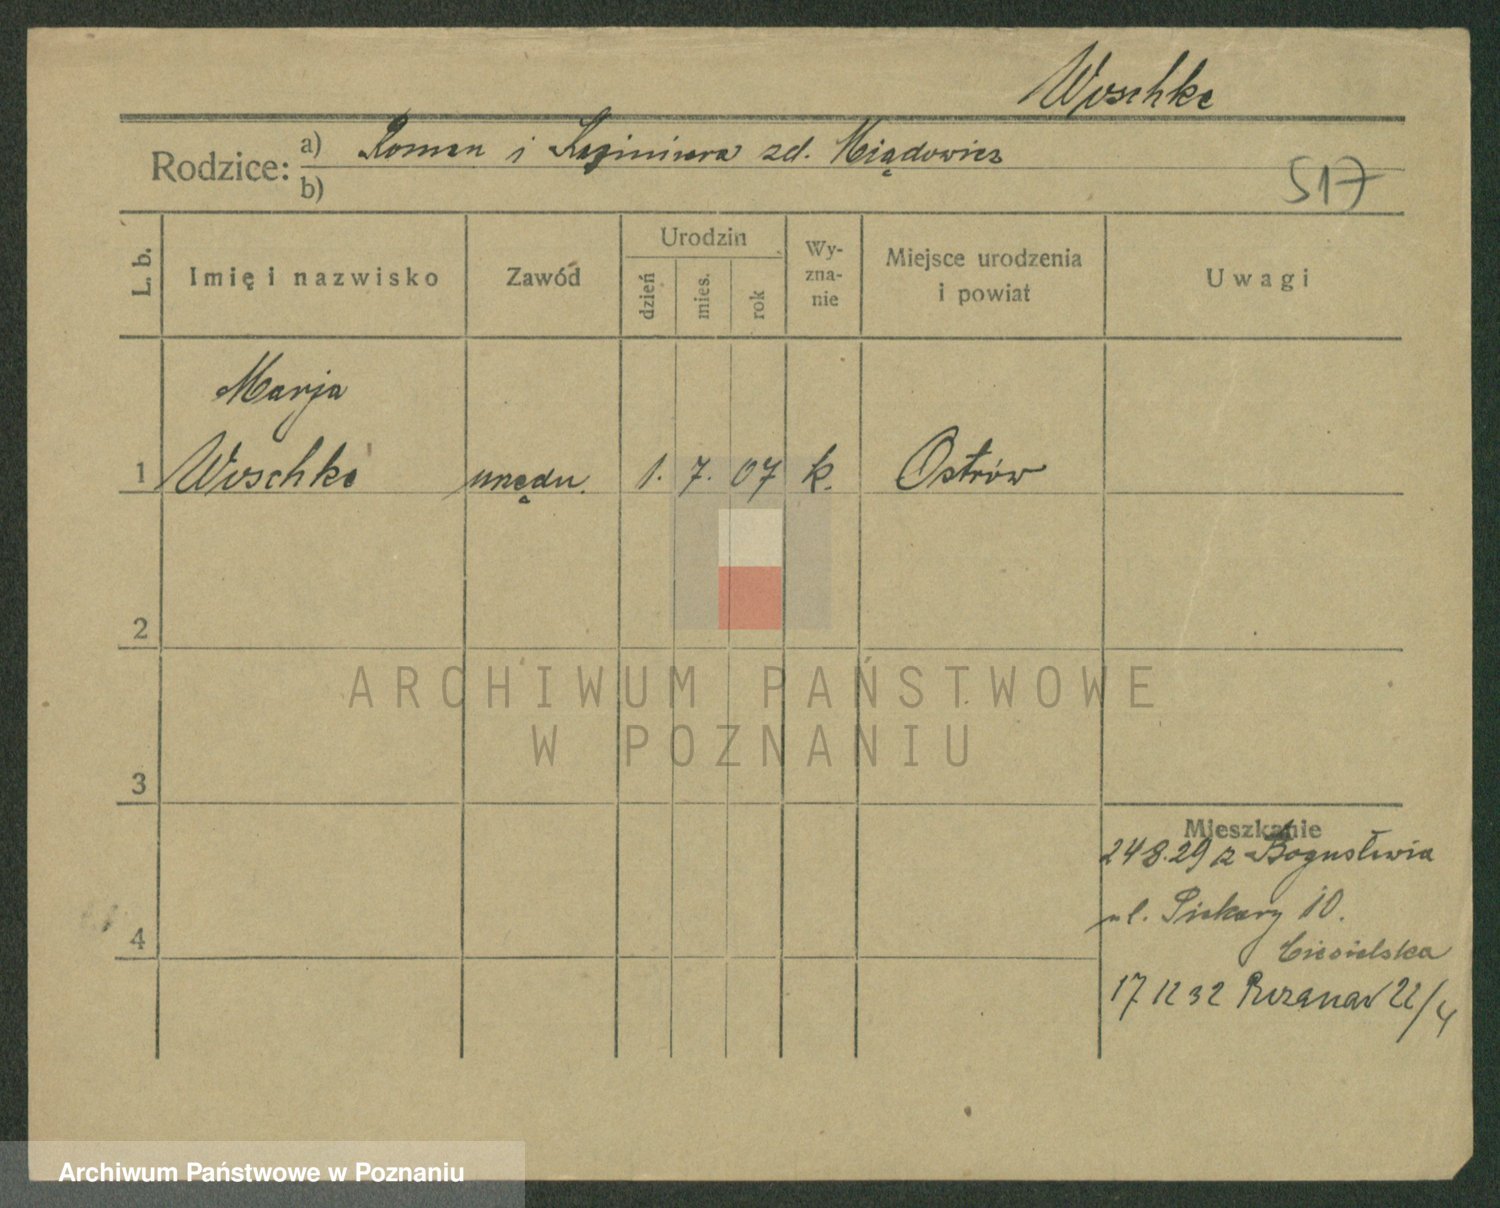 Woschke
Rodzice: a) Roman i Kazimiera zd. Miądowicz
b)
517
L. b. Imię i nazwisko Zawód Urodzin dzień mies. rok Wy-zna-nie Miejsce urodzenia i powiat Uwagi
Marja
1 Woschke urzędn. 1. 7. 07 k. Ostrów
2
3
4
Mieszkanie
24 8.29 z Bogusławia
ul. Piekary 10.
Ciesielska
17 12 32 Różana 22/4
ARCHIWUM PAŃSTWOWE
W POZNANIU
Archiwum Państwowe w Poznaniu